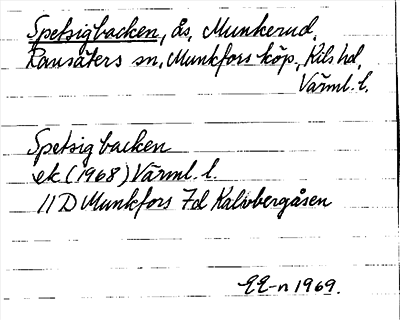 Spetsigbacken, ås, Munkerud,
Ransäters sn, Munkfors köp, Kils hd,
Värml. l.
Spetsig backen
ek (1968) Värml. l.
11D Munkfors 7d Kalvbergåsen
EE-n 1969.